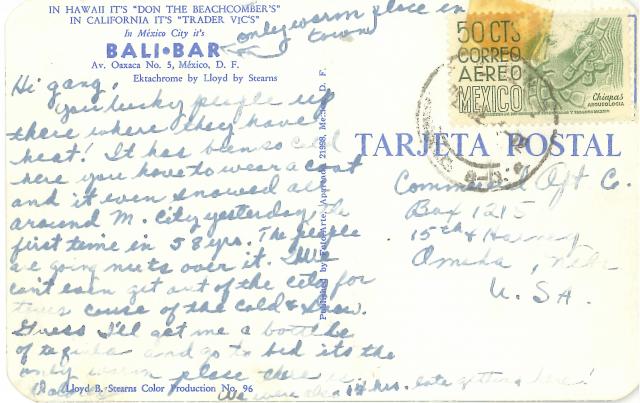 IN HAWAII IT'S "DON THE BEACHCOMBER'S"
IN CALIFORNIA IT'S "TRADER VIC'S"
In México City it's
BALI•BAR
Av. Oaxaca No. 5, México, D. F.
Ektachrome by Lloyd by Stearns
only warm place in
town
Hi gang,
You lucky people up
there where they have
heat! It has been so cold
here you have to wear a coat
and it even snowed all
around M. City yesterday the
first time in 58 yrs. The people
are going nuts over it. We
can't even get out of the city for
cause of the cold & snow.
Guess I'll get me a bottle
of tequila and go to bed its the
only warm place there is
Lloyd B. Stearns Color Production No. 96
We were 14 hrs. late getting here!
Published by FotoArte, Apartado 21999, México, D. F.
50 CTS
CORREO
AEREO
MEXICO
Chiapas
ARQUEOLOGIA
TARJETA POSTAL
Commercial Aft Co.
Box 1215
15th & Harney
Omaha, Nebr
U.S.A.